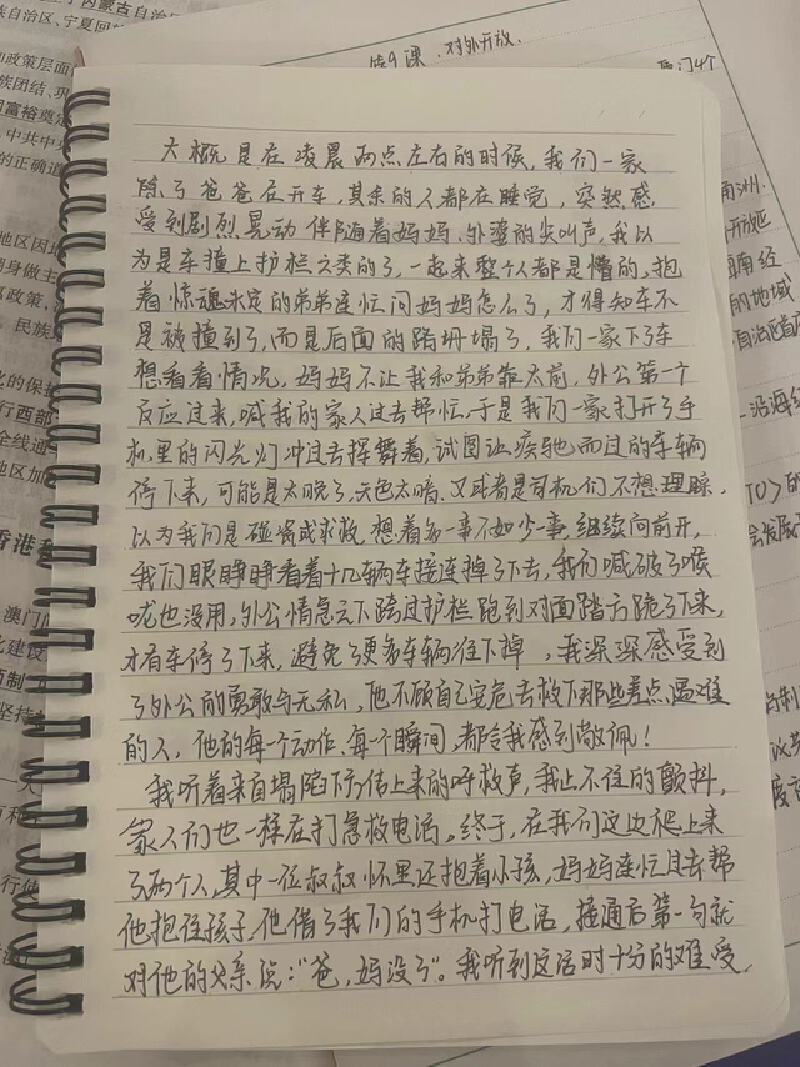 第9课 对外开放.
大概是在凌晨两点左右的时候,我们一家
除了爸爸在开车,其余的人都在睡觉,突然感
受到剧烈晃动 伴随着妈妈、外婆的尖叫声,我以
为是车撞上护栏之类的了,一起来整个人都是懵的,抱
着惊魂未定的弟弟连忙问妈妈怎么了,才得知车不
是被撞到了,而是后面的路坍塌了,我们一家下了车
想看看情况,妈妈不让我和弟弟靠太前,外公第一个
反应过来,喊我的家人过去帮忙,于是我们一家打开了手
机里的闪光灯冲过去挥舞着,试图让疾驰而过的车辆
停下来,可能是太晚了,天色太暗,又或者是司机们不想理睬,
以为我们是碰瓷或求救,想着多一事不如少一事,继续向前开,
我们眼睁睁看着十几辆车接连掉了下去,我们喊破了喉
咙也没用,外公情急之下跨过护栏跑到对面路方跪了下来,
才有车停了下来,避免了更多车辆往下掉,我深深感受到
了外公的勇敢与无私,他不顾自己安危去救下那些差点遇难
的人,他的每一个动作、每一个瞬间,都令我感到敬佩!
我听着来自塌陷下方传上来的呼救声,我止不住的颤抖,
家人们也一样在打急救电话。终于,在我们这边爬上来
了两个人,其中一位叔叔怀里还抱着小孩,妈妈连忙过去帮
他抱住孩子,他借了我们的手机打电话,接通后第一句就
对他的父亲说:“爸,妈没了”。我听到这话时十分的难受,